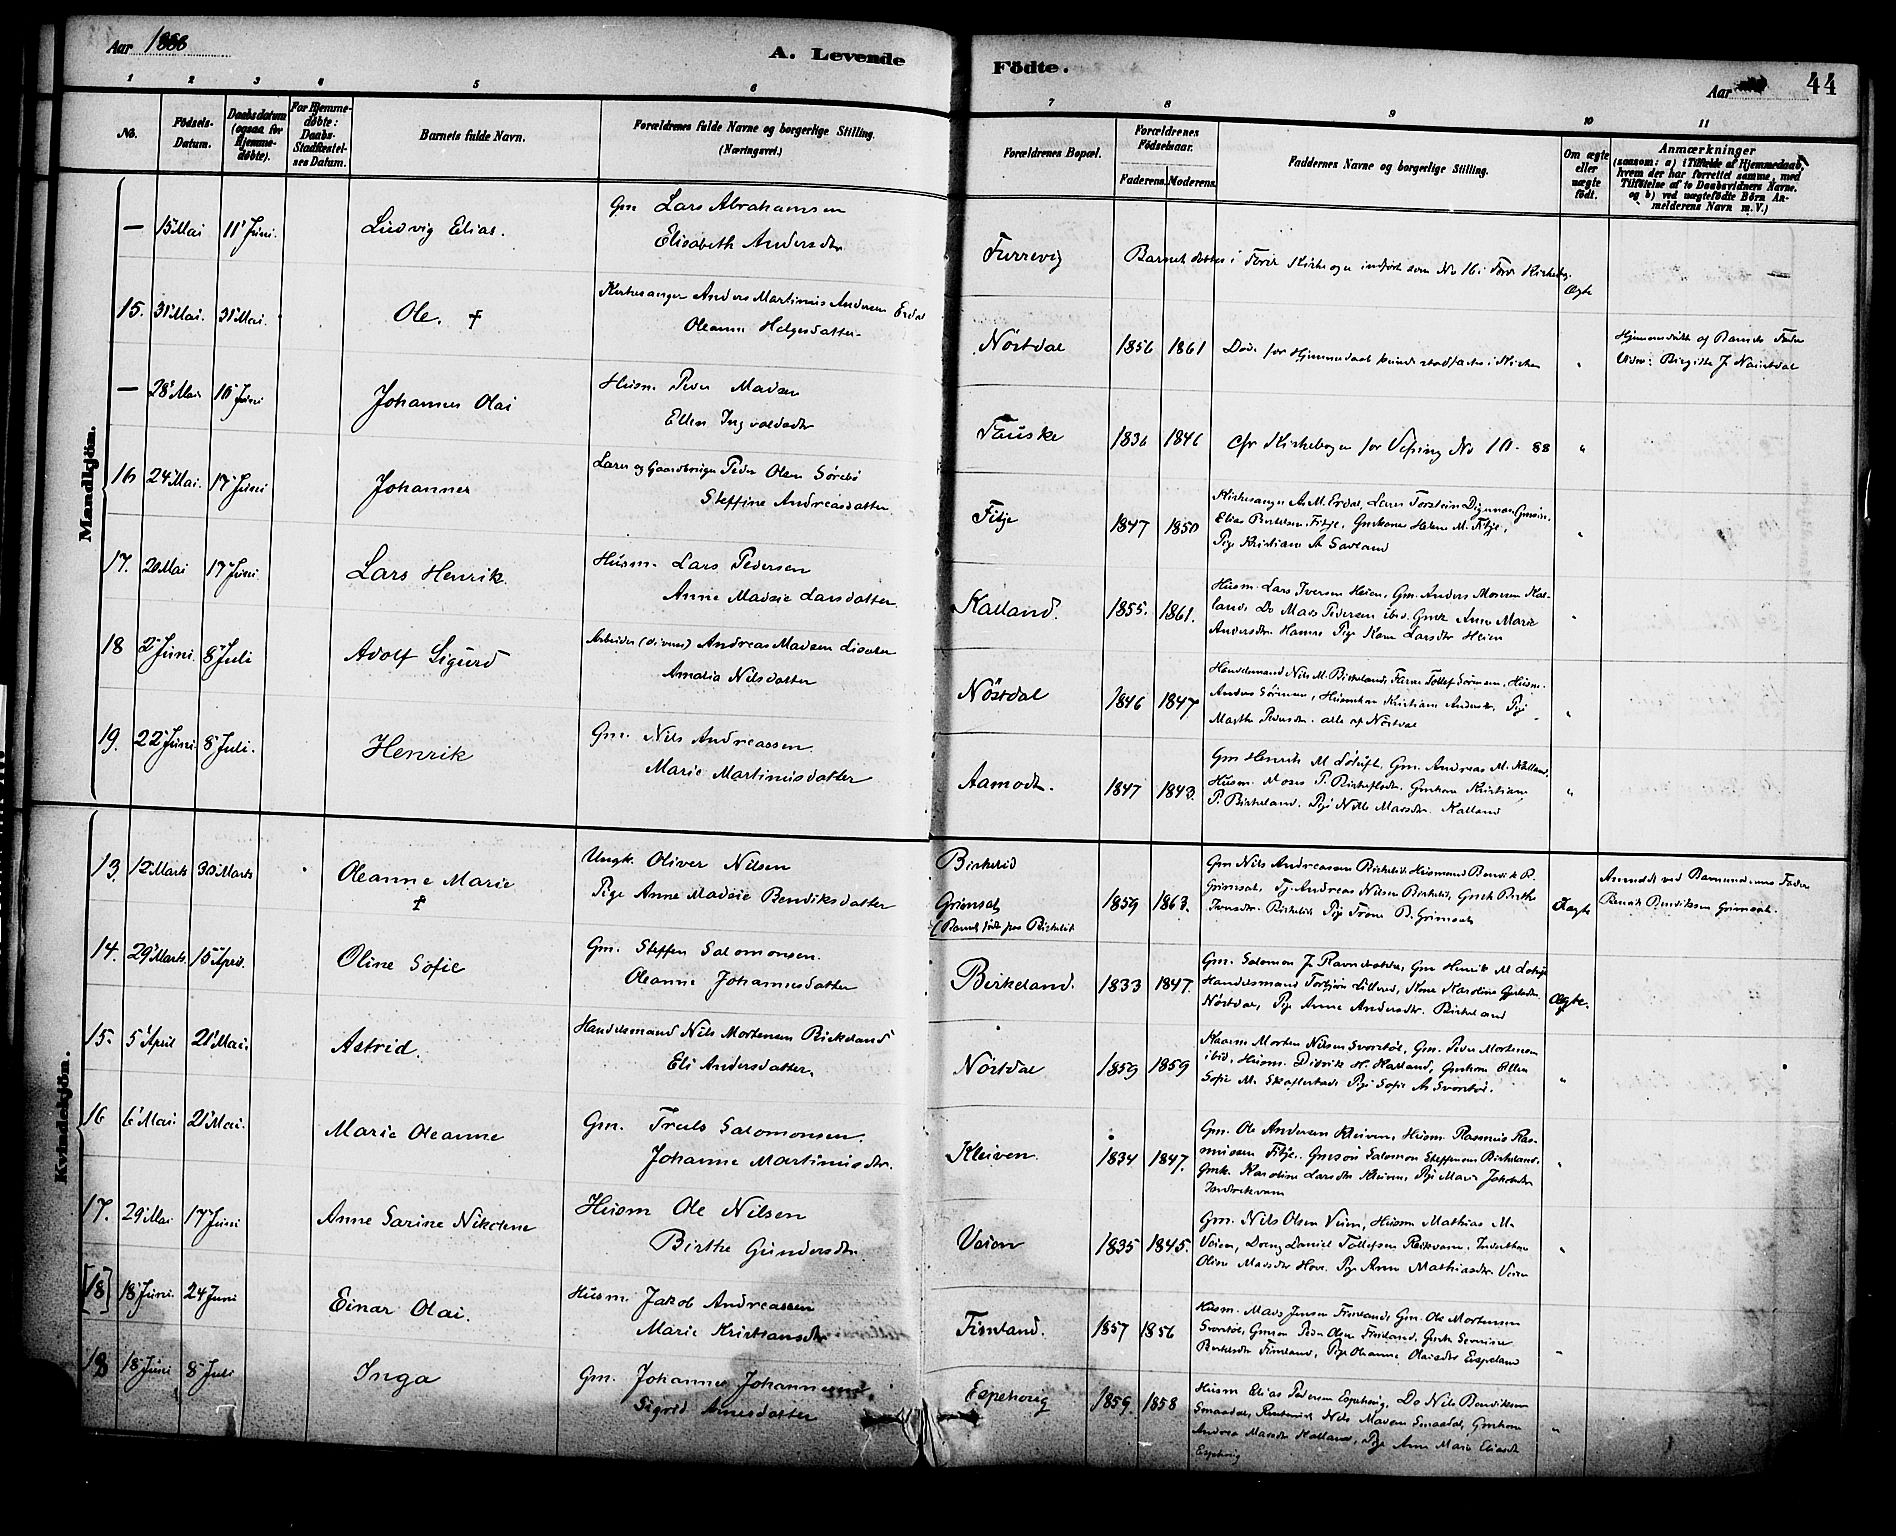 Aar 1888
A. Levende
Födte.
Aar
44
1 2 3 4 5 6
7 8 9 10 11
No.
Födsels-Datum.
Daabsdatum (ogsaa for Hjemme-döbte).
For Hjemme-döbte: Daabs-Stadfæstel-ses Datum.
Barnets fulde Navn.
Forældrenes fulde Navne og borgerlige Stilling. (Næringsvei.)
Forældrenes Bopæl.
Forældrenes Födselsaar.
Faderens. Moderens.
Faddernes Navne og borgerlige Stilling.
Om ægte eller uægte födt.
Anmærkninger
(saasom: a) i Tilfælde af Hjemmedaab,
hvem der har forrettet samme, med
Tilföielse af to Daabsvidners Navne.
og b) ved uægtefödte Börn An-
melderens Navn m. V.)
Mandkjön.
— 15 Mai 11 Juni. Ludvig Elias. Gm Lars Abrahamsen
Elisabeth Andersdtr
Furrevig Barnet döbtes i Kirke og indfört som No 16 i Kirkebog. Ægte
15. 31 Mai. 31 Mai. Ole. † Kirkesanger Anders Martinus Andersen Erdal
Oleanne Helgesdatter
Nöstdal 1856 1861 Döde for Hjemmedaab kunde stadfæstes i Kirken "
Hjemmedöbt af Barnets Fader
Vidne: Birgitte J. Nöistdal
— 28 Mai 10 Juni Johannes Olai Husm. Peder Madsen
Ellen Ingvaldsdtr
Fauske 1836 1846 cfr Kirkebogen for Vefring No 10-88 "
16 24 Mai. 17 Juni Johannes Lærer og Gaardbruger Peder Olsen Sörebö
Steffine Andreasdatter.
Fitje 1847 1850 Kirkesanger A. M. Erdal, Lærer Torstein
Elias Bertelsen Fitje, Gmkone Helene M. Fitje,
Pige Kristiane A. "
17. 20 Mai 17 Juni Lars Henrik. Husm. Lars Pedersen
Anne Madsie Larsdatter.
Kalland. 1855. 1861. Husm. Lars Iversen Heien, Gm. Anders Monsen Kal-
land, Do Mads Pedersen ibid. Gmk Anne Marie
Andersdtr. Hamre Pige Larsdtr Heien "
18 2 Juni. 8 Juli Adolf Sigurd Arbeider Andreas Madsen
Amalia Nilsdatter
Nöstdal 1846 1847 Handelsmand Nils M. Birkeland, Tollef Sörensen, Husm.
Anders Sörensen, Kristiane Andersdtr. Pige
Marthe Pedersdtr. alle af Nöstdal "
19. 22 Juni. 8 Juli. Henrik Gm. Nils Andreassen.
Marie Martinusdatter
Aamodt. 1847 1843. Gm Henrik M Lötuft, Gm. Andreas M. Kalland,
Husm. Moses P. Gmkone Kristiane
P. Birkeland. Pige Madsdtr. Kalland "
Kvindekjön.
13. 12 Marts 30 Marts Oleanne Marie † Ungk. Oliver Nilsen
Pige Anne Madsie Bendiksdatter
Birkelid
Grimset
(Barnet födt paa Birkelid
1859 1863. Gm Nils Andreassen Birkelid, Husmand Bendik P.
Grimset, Andreas Nilsen Birkelid, Gmk Birthe
Iversdtr. Birkelid Pige P. Grimset Uægte
Anmeldt ved Barnemoderens Fader
Bendik Bendiksen Grimset.
14. 29 Marts. 15 April. Oline Sofie Gm. Steffen Salomonsen.
Oleanne Johannesdatter
Birkeland. 1833 1847. Gm. Salomon J. Gm Henrik M Lötuft
Handelsmand Torbjörn Kone Karoline
Nöstdal, Pige Anne Andersdtr. Birkeland Ægte.
15. 5 April 21 Mai. Astrid. Handelsmand Nils Mortensen Birkeland
Eli Andersdatter.
Nöstdal 1859 1859 Kaarm Morten Nilsen Svorstöl, Gm. Peder Mortensen
ibid, Husm. Didrik H. Kalland, Gmkone Ellen
Sofie M. Pige Sofie A. Svorstöl. "
16 6 Mai. 21 Mai. Marie Oleanne Gm. Truls Salomonsen.
Johanne Martinusdtr.
Kleiven. 1834 1847. Gm. Ole Andersen Kleiven, Husm Rasmus Ras-
mussen Fitje. Gmsön Salomon Steffensen Birkeland.
Gmk. Karoline Larsdtr Kleiven, Pige Marie Jakobsdtr
Indrekvam "
17. 29 Mai 17 Juni Anne Sarine Nikoline Husm Ole Nilsen
Birthe Gundersdtr
Veien 1835 1845. Gm. Nils Olsen Veien, Husm Mathias M.
Veien, Dreng Daniel Tollefsen
Oline Madsdtr Hove. Pige Anne Mathiasdtr. Veien "
[18] 18 Juni. 24 Juni Einar Olai. Husm. Jakob Andreassen
Marie Kristiansdtr
Fimland. 1857 1856 Husm. Mads Jensen Fimland, Gm. Ole Mortensen
Svorstöl, Gmsön Peder Olsen Fimland, Gmk
Bertelsdtr Fimland, Pige Oleanne Olaisdtr Espeland "
18 18 Juni 8 Juli Inga Gm. Johannes Johannessen
Sigrid Arnesdatter
Espehovig 1859. 1858 Husm Elias Pedersen Espehovig, Do Nils Bendiksen
Smaadal, Nils Madsen Smaadal, Gmkone
Andrea Madsdtr Kalland, Pige Anne Marie Eliasdtr
Espehovig "